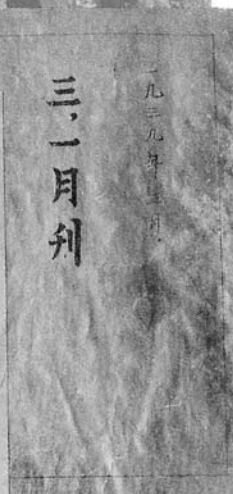 一九三九年三月.
三,一月刊